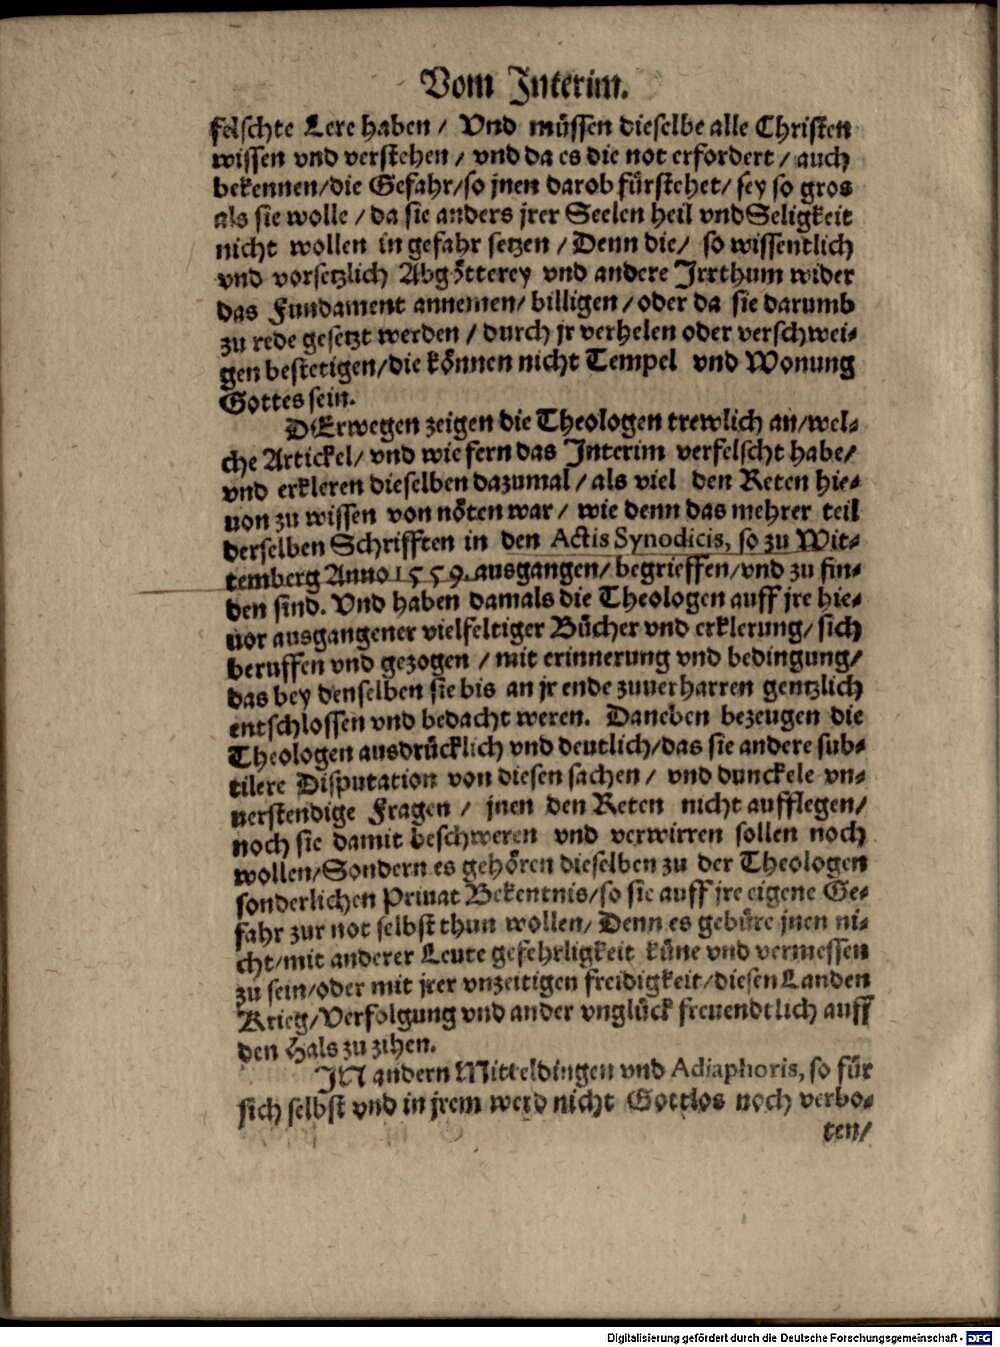 Vom Interim.
felschte Lere haben / Vnd müssen dieselbe alle Christen
wissen vnd verstehen / vnd da es die not erfordert / auch
bekennen/die Gefahr/so jnen darob fürstehet/ sey so gros
als sie wolle / da sie anders jrer Seelen heil vnd Seligkeit
nicht wollen in gefahr setzen / Denn die/ so wissentlich
vnd vorsetzlich Abgötterey vnd andere Irrthum wider
das Fundament annemen/ billigen / oder da sie darumb
zu rede gesetzt werden / durch jr verhelen oder verschwei-
gen bestetigen/die können nicht Tempel vnd Wonung
Gottes sein.
DErwegen zeigen die Theologen trewlich an/wel-
che Artickel/ vnd wie fern das Interim verfelscht habe/
vnd erkleren dieselben dazumal / als viel den Reten hie-
uon zu wissen von nöten war / wie denn das mehrer teil
derselben Schrifften in den Actis Synodicis, so zu Wit-
temberg Anno 1559. ausgangen/ begrieffen/vnd zu fin-
den sind. Vnd haben damals die Theologen auff jre hie-
uor ausgangener vielfeltiger Bücher vnd erklerung/ sich
beruffen vnd gezogen / mit erinnerung vnd bedingung/
das bey denselben sie bis an jr ende zuuerharren gentzlich
entschlossen vnd bedacht weren. Daneben bezeugen die
Theologen ausdrücklich vnd deutlich/das sie andere sub-
tilere Disputation von diesen sachen / vnd dunckele vn-
uerstendige Fragen / jnen den Reten nicht aufflegen/
noch sie damit beschweren vnd verwirren sollen noch
wollen/Sondern es gehören dieselben zu der Theologen
sonderlichen Priuat Bekentnis/so sie auff jre eigene Ge-
fahr zur not selbst thun wollen/ Denn es gebüre jnen ni-
cht/mit anderer Leute gefehrligkeit küne vnd vermessen
zu sein/oder mit jrer vnzeitigen freidigkeit/diesen Landen
Krieg/Verfolgung vnd ander vnglück freuendtlich auff
den Hals zu zihen.
IN andern Mitteldingen vnd Adiaphoris, so für
sich selbst vnd in jrem werd nicht Gottlos noch verbo-
ten/
Digitalisierung gefördert durch die Deutsche Forschungsgemeinschaft - DFG